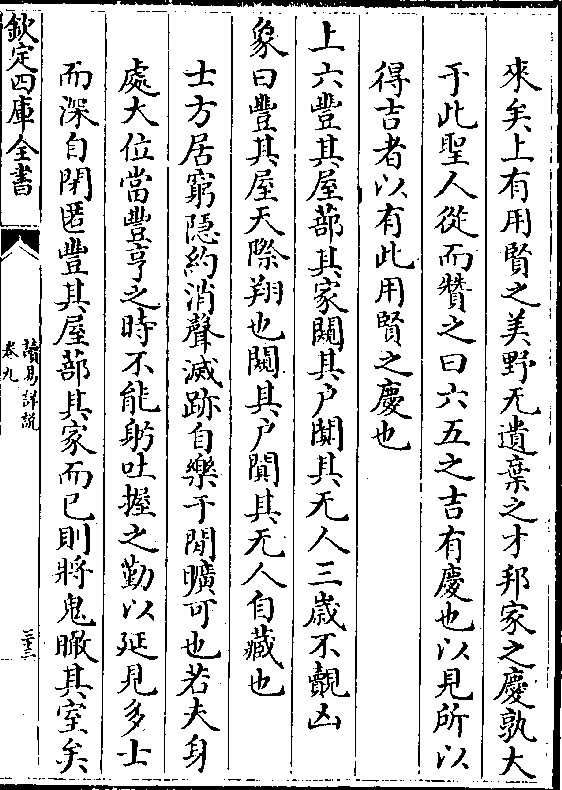 來矣上有用賢之美野无遺棄之才邦家之慶孰大
于此聖人從而贊之曰六五之吉有慶也以見所以
得吉者以有此用賢之慶也
上六豐其屋蔀其家闚其户闃其无人三歲不覿凶
象曰豐其屋天際翔也闚其户闃其无人自藏也
士方居窮隱約消聲滅跡自樂于閒曠可也若夫身
處大位當豐亨之時不能躬吐握之勤以延見多士
而深自閉匿豐其屋蔀其家而已則將鬼瞰其室矣
欽定四庫全書
讀易詳說
卷九
二十三